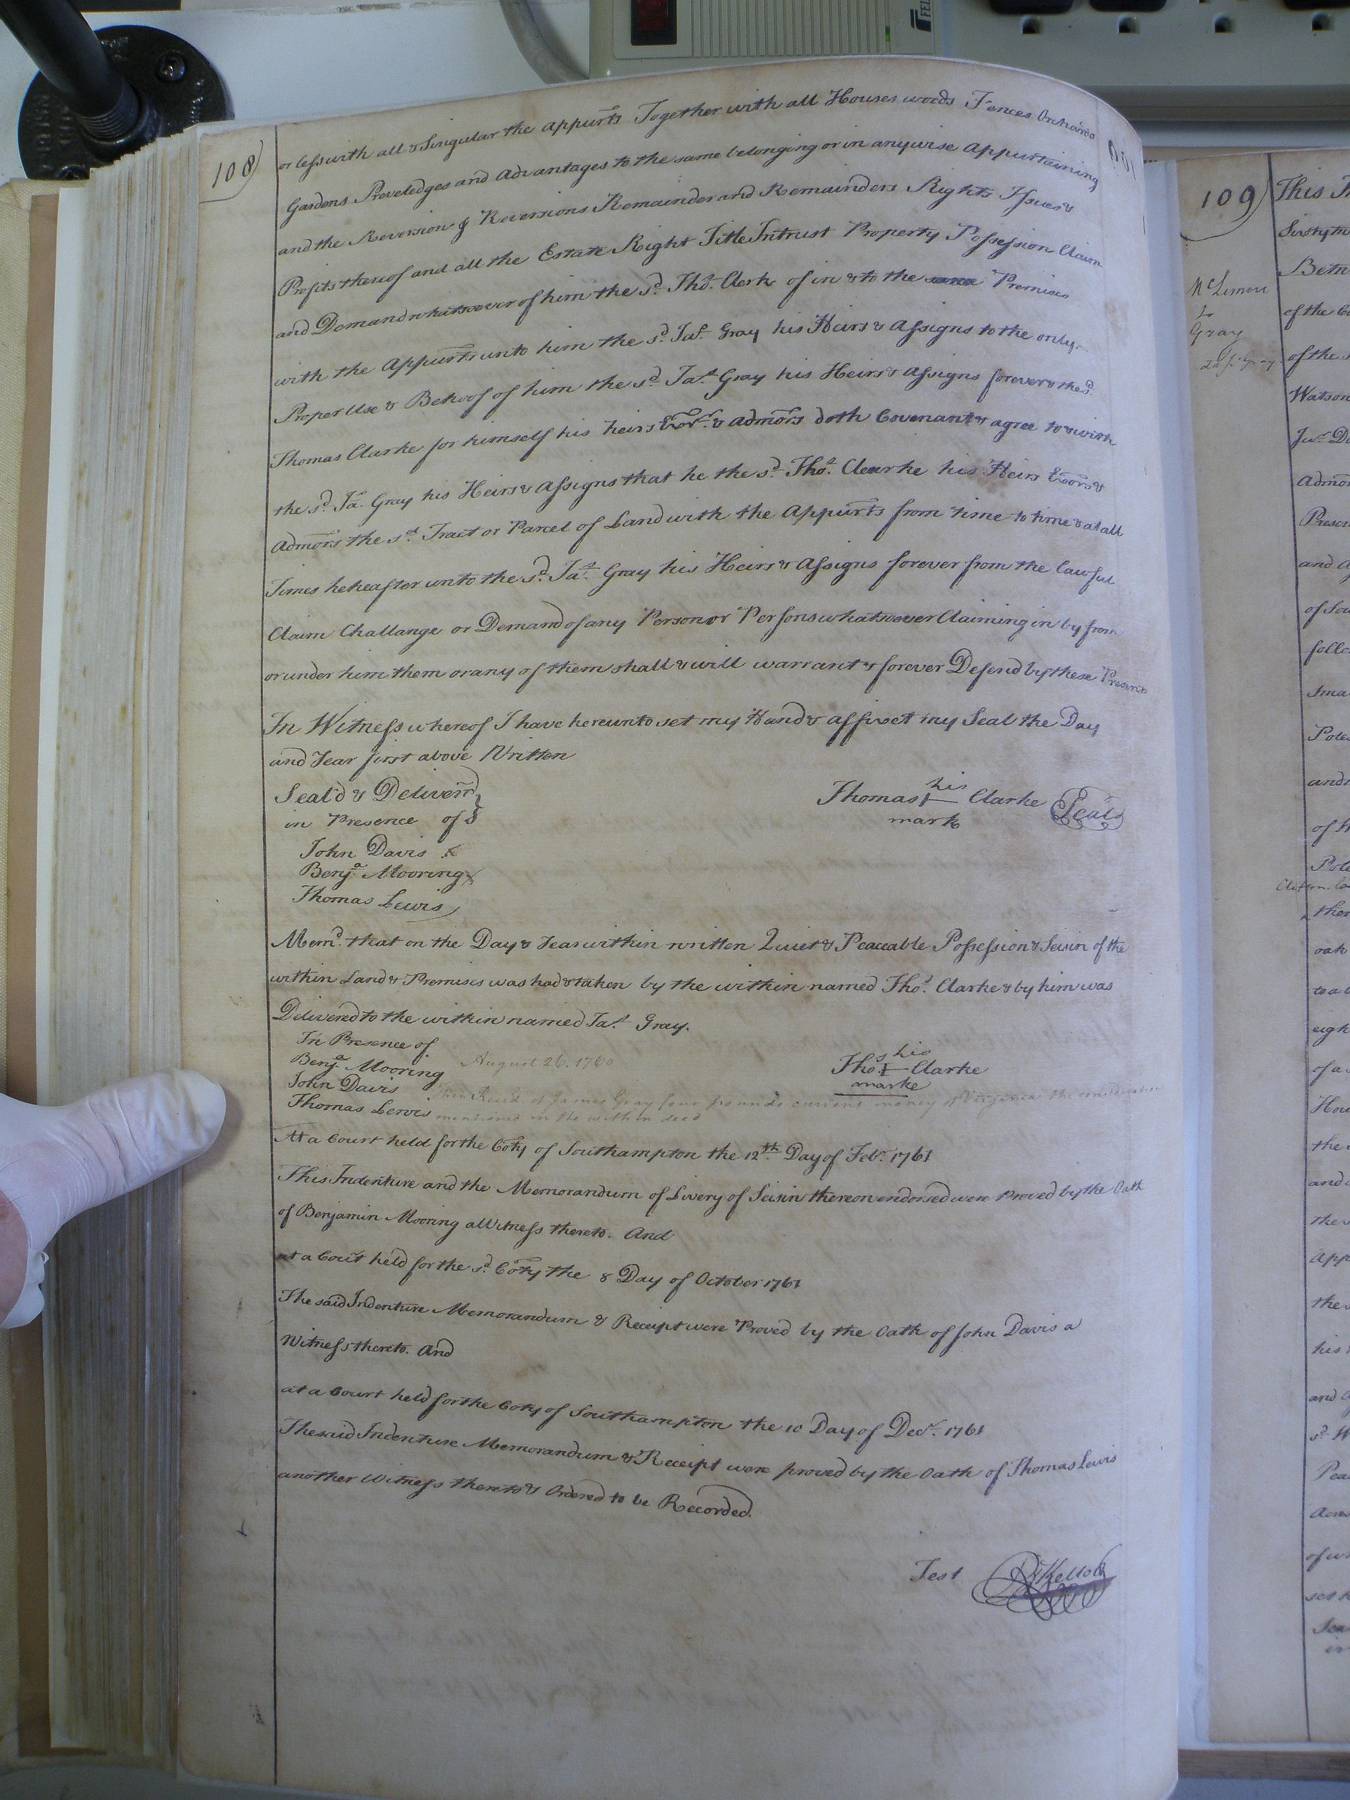 108
or less with all & Singular the appurts Together with all Houses woods Fences Orchards
Gardens Preveledges and Advantages to the same belonging or in anywise Appurtaining
and the Reversion & Reversions Remainder and Remainders Rights Issues &
Profits thereof and all the Estate Right Title Intrust Property Possession Claim
and Demand whatsoever of him the sd. Thos. Clerk of in & to the Premises
with the Appurts unto him the sd. Jas. Gray his Heirs & Assigns to the only
Proper Use & Behoof of him the sd. Jas. Gray his Heirs & Assigns forever & the sd.
Thomas Clarke for himself his heirs Exors. & Admors doth Covenant & agree to & with
the sd. Ja. Gray his Heirs & Assigns that he the sd. Thos. Clearke his Heirs Exors &
Admors the sd. Tract or Parcel of Land with the Appurts from time to time & at all
Times hereafter unto the sd. Jas. Gray his Heirs & Assigns forever from the lawful
Claim Challange or Demand of any Person or Persons whatsoever Claiming in by from
or under him them or any of them shall & will warrant & forever Defend by these Presents
In Witness whereof I have hereunto set my Hand & affixet my Seal the Day
and Year first above Written
Seal'd & Deliverd
in Presence of
John Davis
Benja. Mooring
Thomas Lewis
his
Thomas Clarke Seal
mark
Memd. that on the Day & Year within written Quiet & Peaceable Possession & Seisin of the
within Land & Premises was had & taken by the within named Thos. Clarke & by him was
Delivered to the within named Jas. Gray.
In Presence of
Benja. Mooring
John Davis
Thomas Lewis
his
Thos. Clarke
marke
August 26. 1760
Then Recd. of James Gray four pounds current money of Virginia the consideration
mentioned in the within deed
At a Court held for the Coty of Southampton the 12th. Day of Feb. 1761
This Indenture and the Memorandum of Livery of Seisin thereon endorsed were Proved by the Oath
of Benjamin Mooring a Witness thereto. And
at a Court held for the sd. Coty the 8 Day of October 1761
The said Indenture Memorandum & Receipt were Proved by the Oath of John Davis a
Witness thereto. And
at a Court held for the Coty of Southampton the 10 Day of Decr. 1761
The said Indenture Memorandum & Receipt were proved by the Oath of Thomas Lewis
another Witness thereto & Ordered to be Recorded.
Test
109
McLemore
to
Gray
This
Sixty
Betw
of the
of the
Watson
Admo
Presen
and
of
follo
Pole
and
of
oak
to a
eigh
of
Hou
the
and
the
App
the
his
and
Pea
of
set